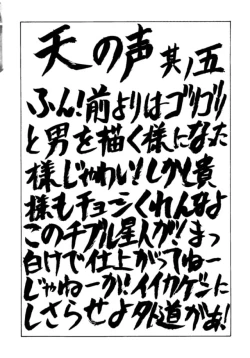 天の声 其ノ五
ふん!前よりはゴリゴリ
と男を描く様になった
様じゃわい!しかし貴
様もチョーシくれんなよ
このチブル星人が!!まっ
白けで仕上がってねー
じゃねーか!!イイカゲンに
しさらせよ外道があ!